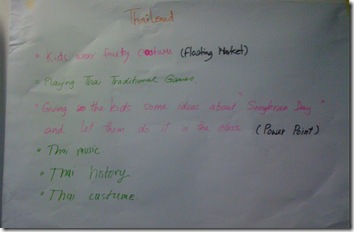 Thailand
• Kids wear fruity costume (Floating Market)
• Playing Thai Traditional Games
• Giving the kids some ideas about "Songkran Day"
and let them do it in the class (Power Point)
• Thai music
• Thai history
• Thai costume